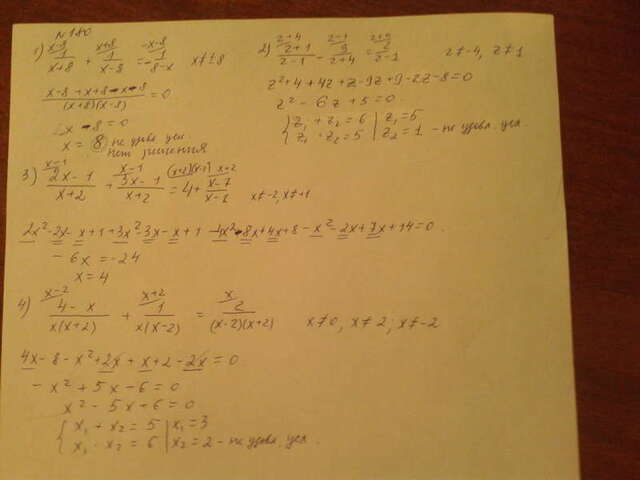 №180
1) x-8/ 1/(x+8) + x+8/ 1/(x-8) = -x-8/ 1/(8-x)   x≠±8
(x-8+x+8-x-8)/((x+8)(x-8)) = 0
2x-8=0
x = 8 не удовл. усл.
нет решения
2) z+4/ (z+1)/(z-1) - z-1/ 9/(z+4) = z+4/ 2/(z-1)   z≠-4, z≠1
z²+4+4z+z-9z+9-2z-8=0
z²-6z+5=0
{ z₁+z₂=6 | z₁=5
{ z₁·z₂=5 | z₂=1 - не удовл. усл.
3) x-1/ (2x-1)/(x+2) + x-1/ (3x-1)/(x+2) = (x+2)(x-1)/ 4 + x+2/ (x-7)/(x-1)   x≠-2, x≠+1
2x²-2x-x+1+3x²-3x-x+1-4x²-8x+4x+8-x²-2x+7x+14=0
-6x=-24
x=4
4) x-2/ (4-x)/(x(x+2)) + x+2/ 1/(x(x-2)) = x/ 2/((x-2)(x+2))   x≠0, x≠2; x≠-2
4x-8-x²+2x+x+2-2x=0
-x²+5x-6=0
x²-5x+6=0
{ x₁+x₂=5 | x₁=3
{ x₁·x₂=6 | x₂=2 - не удовл. усл.